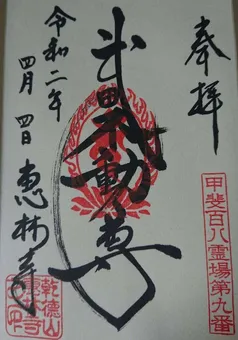 奉拝
甲斐百八霊場第九番
武田不動尊
令和二年
四月四日
恵林寺
乾徳山